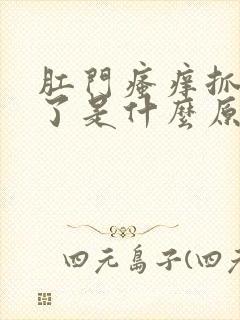 肛門瘙痒抓
了是什麼原
四元島子(四元